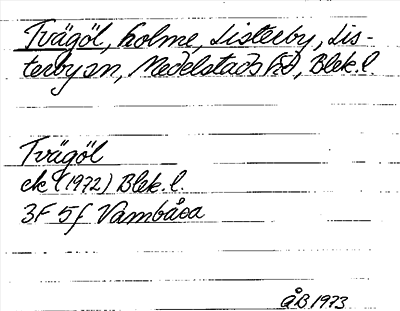 Tvägöl, holme, Listerby, Lis-
terby sn, Medelstads hd, Blek. l.
Tvägöl
ek (1972) Blek. l.
3F 5f Vambåsa
ÅB 1973